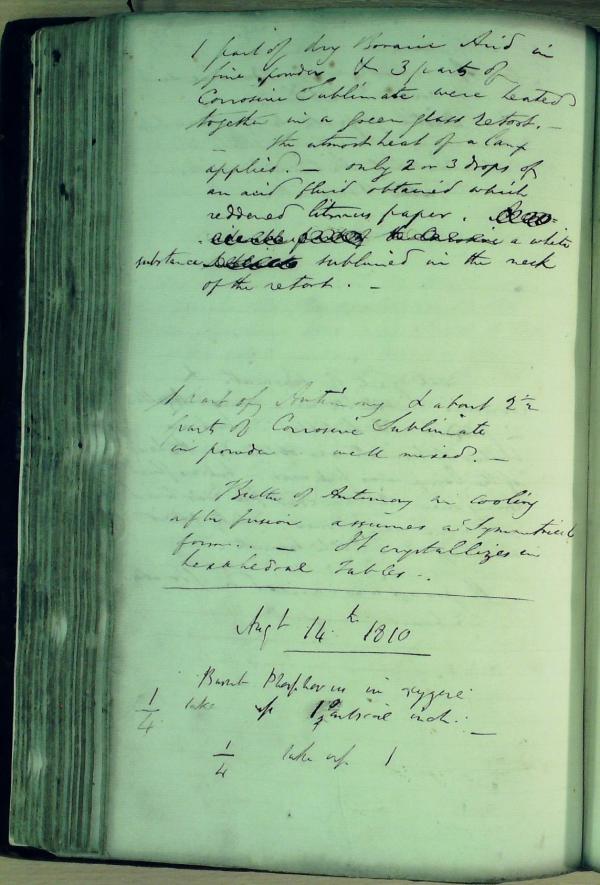 1 part of dry Boracic Acid in
fine powder & 3 parts of
Corrosive Sublimate were heated
together in a green glass retort. —
— the utmost heat of a lamp
applied. — only 2 or 3 drops of
an acid fluid obtained which
reddened litmus paper.
a white
substance sublimed in the neck
of the retort. —
1 part of Antimony & about 2 1/2
parts of Corrosive Sublimate
in powder well mixed. —
Butter of Antimony in cooling
after fusion assumes a Symmetrical
form. — It crystallizes in
hexahedral Tables..
Augt 14.th 1810
Burnt Phosphorus in oxygene
1/4 take up 1 cubical inch. —
1/4 take up 1